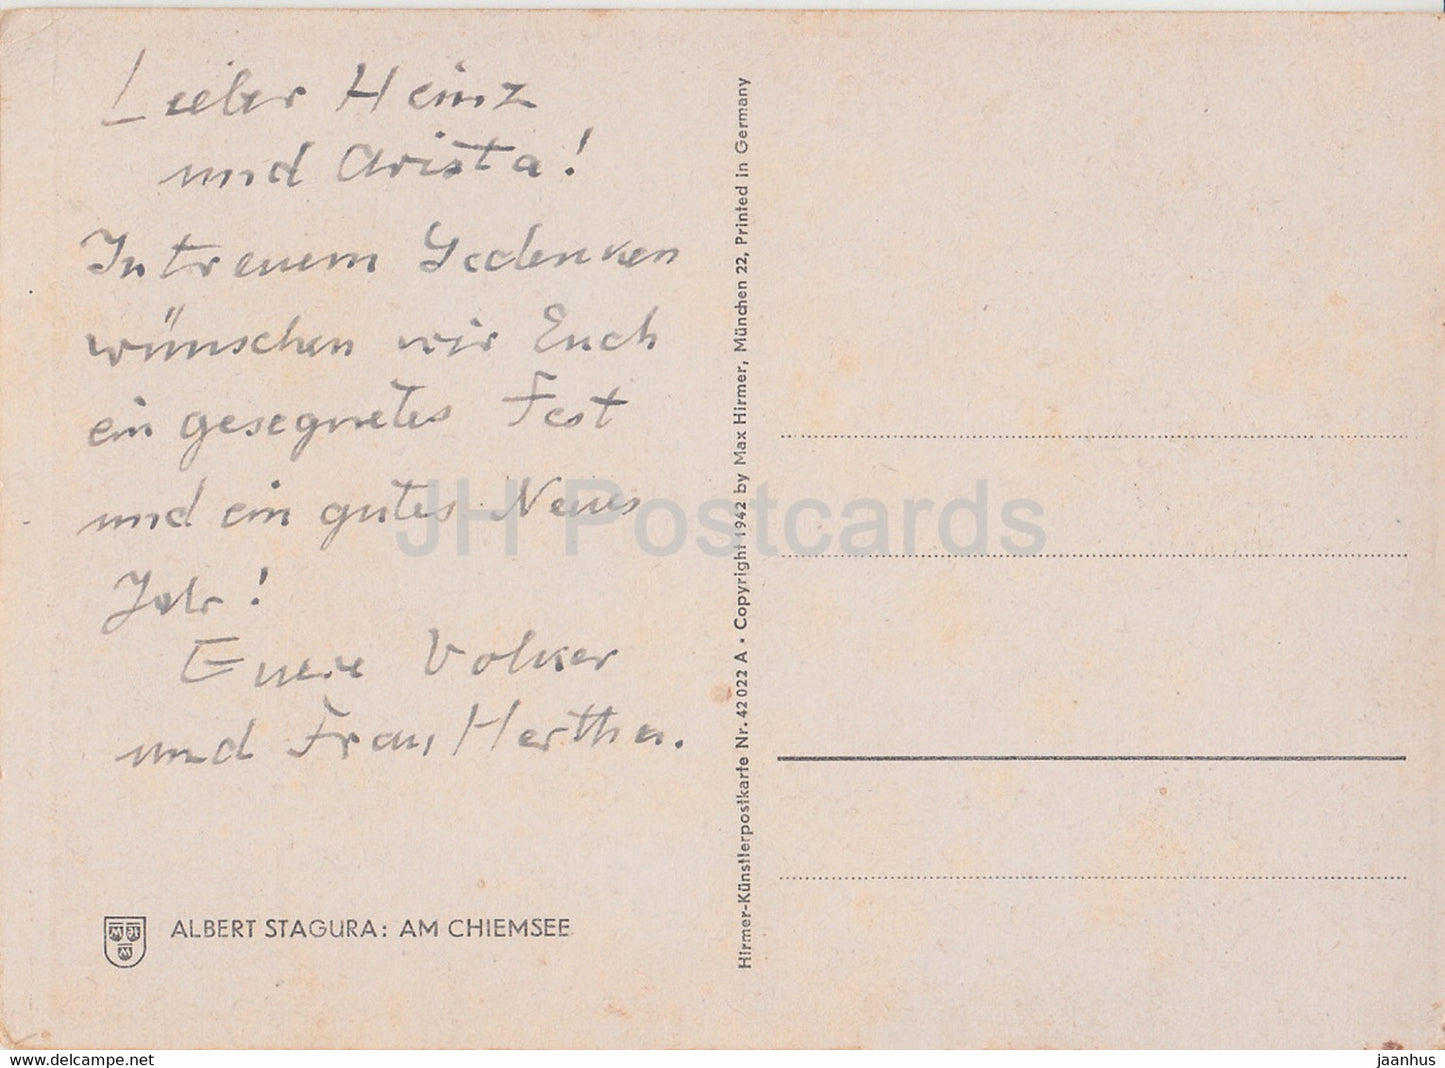 Lieber Heinz
und Arista!
In treuem Gedenken
wünschen wir Euch
ein gesegnetes Fest
und ein gutes Neues
Jahr!
Euere Volker
und Frau Hertha.
ALBERT STAGURA: AM CHIEMSEE
Hirmer-Künstlerpostkarte Nr. 42022 A • Copyright 1942 by Max Hirmer, München 22, Printed in Germany
JH Postcards
www.delcampe.net
jaanhus